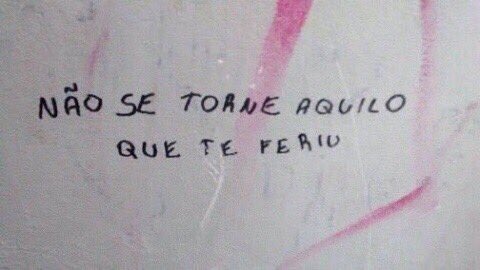 NÃO SE TORNE AQUILO
QUE TE FERIU